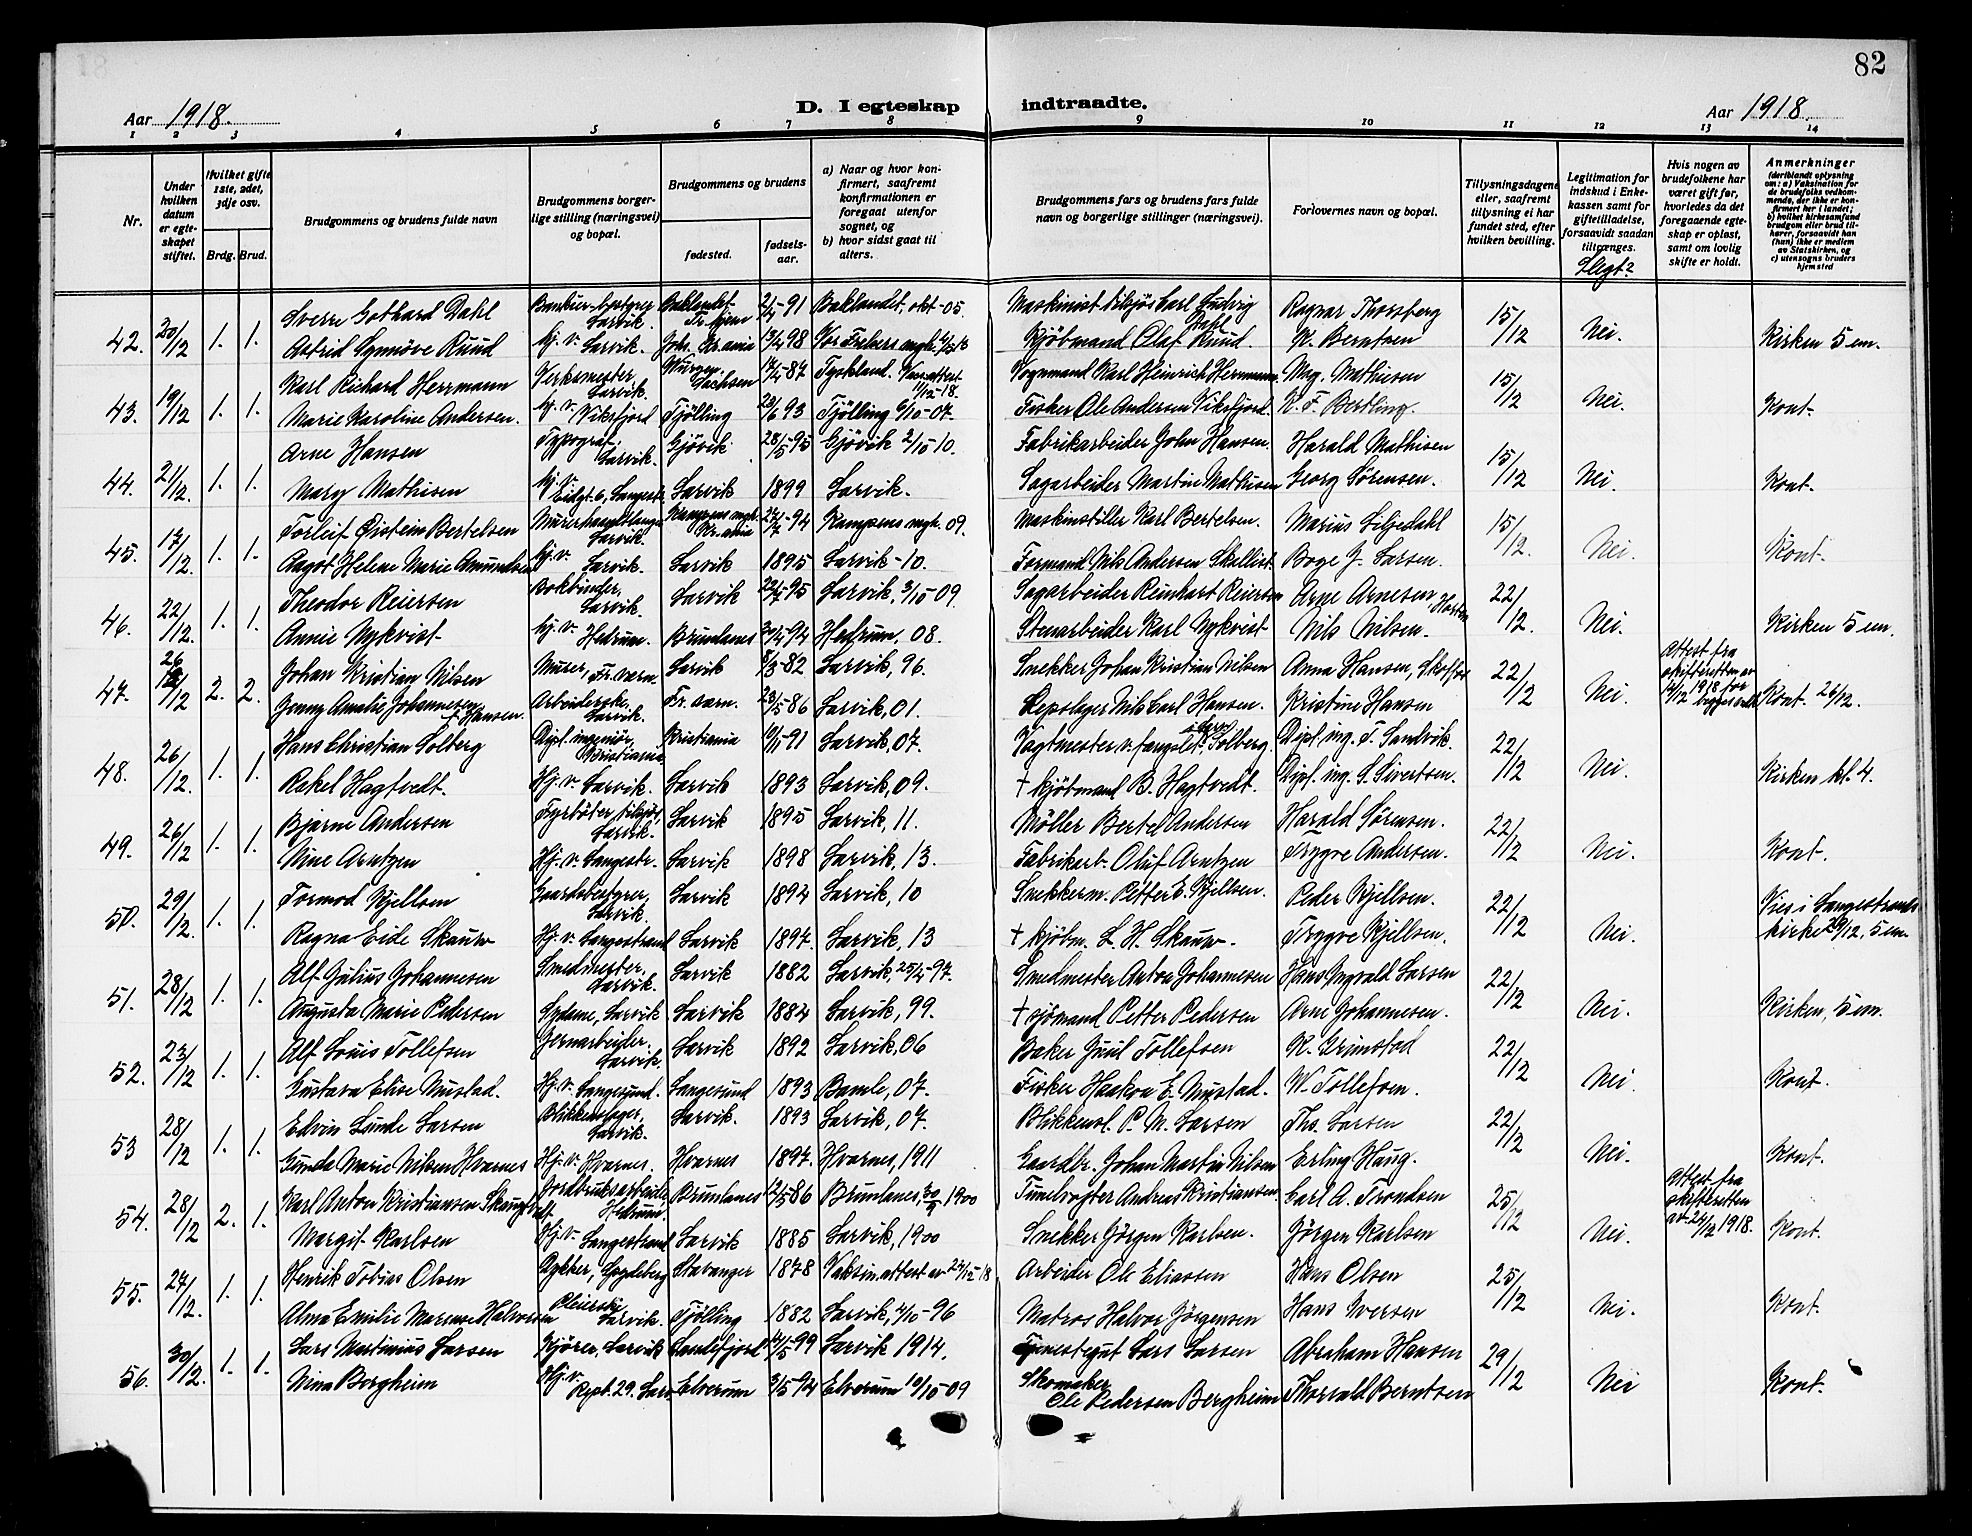 82
Aar 1918. D. I egteskap indtraadte. Aar 1918.
1 2 3 4 5 6 7 8 9 10 11 12 13 14
Nr.
Under hvilken datum er egteskapet stiftet.
Hvilket gifte 1ste, 2det, 3dje osv.
Brdg. Brud.
Brudgommens og brudens fulde navn
Brudgommens borgerlige stilling (næringsvei) og bopæl.
Brudgommens og brudens
fødested.
fødselsaar.
a) Naar og hvor konfirmert, saafremt konfirmationen er foregaat utenfor sognet, og
b) hvor sidst gaat til alters.
Brudgommens fars og brudens fars fulde navn og borgerlige stillinger (næringsvei).
Forlovernes navn og bopæl.
Tillysningsdagene eller, saafremt tillysning ei har fundet sted, efter hvilken bevilling.
Legitimation for indskud i Enkekassen samt for giftetilladelse, forsaavidt saadan tiltrænges.
Slegt?
Hvis nogen av brudefolkene har været gift før, hvorledes da det foregaaende egteskap er opløst, samt om lovlig skifte er holdt.
Anmerkninger (deriblandt oplysning om: a) Vaksination for de brudefolks vedkommende, der ikke er konfirmert her i landet; b) hvilket kirkesamfund brudgom eller brud tilhører, forsaavidt han (hun) ikke er medlem av Statskirken, og c) utensogns bruders hjemsted
Sverre Gothard Dahl Larvik. 2/4-91 Baklandet, okt-05. Maskinist Carl Ludvig Dahl Ragnar Thorsberg
42. 20/12 1. 1. Astrid Synnöve Ruud hj. v. Larvik. 13/4 98 Kjöbmand Olaf Ruud. K. Berntsen 15/12 Nei. Kirken 5 em.
Karl Richard Herrmann Verksmester, Larvik. Wurzen, Sachsen 14/4-87 Tyskland. Vac. attest 11/12-18. Vognmand Karl Heinrich Herrmann Mag. Mathisen
43. 19/12 1. 1. Marie Karoline Andersen. hj. v. Viksfjord Tjölling 23/6 93 Tjölling 6/10-07. Fisker Ole Andersen Viksfjord. K. F. Bertling. 15/12 Nei. Kont.
Arne Hansen Typograf. Larvik. Gjövik 28/5-95 Gjövik 2/10 10. Fabrikarbeider John Hansen. Harald Mathisen
44. 21/12. 1. 1. Mary Mathisen hj. v. Larvik 1899 Larvik. Sagarbeider Martin Mathisen Georg Sörensen. 15/12 Nei. Kont.
Torleif Øistein Bertelsen Larvik. Kampens mgh. Kr.ania 27/7-94 Kampens mgh. 09. Maskinstiller Karl Bertelsen. Marius Liljedahl
45. 17/12. 1. 1. Aagot Helene Marie Amundsen hj. v. Larvik. Larvik 1895 Larvik-10. Formand Nils Andersen Boye J. Larsen. 15/12. Nei. Kont.
Theodor Reiersen Bokbinder, Larvik. Larvik 22/5-95 Larvik, 3/10-09. Sagarbeider Reinhart Reiersen Arne Arnesen,
46. 22/12. 1. 1. Annie Nykvist hj. v. Hedrum. Brunlanes 20/4-94 Hedrum, 08. Stenarbeider Karl Nykvist Nils Nilsen. 22/12. Nei. Kirken 5 em.
Johan Kristian Nilsen Murer, Fr. værn. Larvik 8/3-82 Larvik, 96. Snekker Johan Kristian Nilsen Anna Hansen,
47. 26/12 2. 2. Jenny Amalie Johannesen f. Hansen. Arbeiderske. Larvik. Fr. værn. 23/5-86 Larvik, 01. Repslager Nils Carl Hansen. Kristine Hansen 22/12 Nei. Attest fra skifteretten av 14/12 1918 for Kont. 26/12.
Hans Christian Solberg Dipl. ingeniör, Kristiania Kristiania 10/11-91 Larvik, 07. Vagtmester v. fængslet Solberg. Dipl. ing. F. Sandvik.
48. 26/12. 1. 1. Rakel Hagtvedt. Hj. v. Larvik. Larvik 1893 Larvik, 09. † kjöbmand B. Hagtvedt. Dipl. ing. S. Sivertsen. 22/12 Nei. Kirken kl. 4.
Bjarne Andersen Fyrböter, tilsjös, Larvik. Larvik 1895 Larvik, 11. Möller Bertel Andersen Harald Sörensen.
49. 26/12 1. 1. Nine Arntzen Hj. v. Langestr. Larvik 1898 Larvik, 13. Fabrikarb. Oluf Arntzen Trygve Andersen. 22/12 Nei. Kont.
Tormod Kjellsen Gaardsbestyrer, Larvik. Larvik 1894 Larvik, 10 Snekkerm. Petter E. Kjellsen. Peder Kjellsen.
50. 29/12. 1. 1. Ragna Eide Skauw Hj. v. Langestrand Larvik 1897. Larvik, 13 † kjöbm. L. H. Skauw. Trygve Kjellsen. 22/12 Nei. Vies i Langestrands kirke 29/12, 5 em.
Alf Julius Johannesen Smedmester, Larvik. Larvik 1882 Larvik, 25/4-97. Smedmester Anton Johannesen Hans Ingvald Larsen
51. 28/12 1. 1. Augusta Marie Pedersen Sydame, Larvik Larvik 1884 Larvik, 99. † sjömand Petter Pedersen Arne Johannesen. 22/12 Nei. Kirken, 5 em.
Alf Louis Tollefsen Jernarbeider. Larvik. Larvik 1892 Larvik, 06 Baker Juul Tollefsen K. Grimstad
52. 23/12 1. 1. Gustava Elise Mustad. Hj. v. Langesund. Langesund 1893 Bamle, 07. Fisker Haakon E. Mustad. W. Tollefsen. 22/12 Nei. Kont.
Edvin Lunde Larsen Blikkenslager, Larvik. Larvik. 1893 Larvik, 07. Blikkensl. P. M. Larsen Ths. Larsen
53 28/12 1. 1. Gunda Marie Nilsen Hvarnes Hj. v. Hvarnes. Hvarnes 1897. Hvarnes, 1911 Gaardbr. Johan Martin Nilsen Erling Haug. 22/12 Nei. Kont.
Karl Anton Kristiansen Jordbruksarbeider Hedrum. Brunlanes 12/5 86 Brunlanes, 30/9 1900 Andreas Kristiansen. Carl A. Trondsen
54. 28/12 2. 1. Margit Karlsen Hj. v. Langestrand Larvik 1885 Larvik, 1900 Snekker Jörgen Karlsen. Jörgen Karlsen 25/12 Nei. Attest fra skifteretten av 24/12 1918. Kont.
Henrik Tobias Olsen Dykker, Stavanger 1878 Vaksin.attest av 23/12-18 Arbeider Ole Eliassen Hans Olsen
55. 27/12. 1. 1. Alma Emilie Marense Halvorsen Pleierske Larvik. Tjölling 1882 Larvik, 4/10-96 Matros Halvor Jörgensen Hans Iversen 25/12 Nei. Kont.
Lars Martinius Larsen Kjörer, Larvik Sandefjord 14/5-99 Larvik 1914. Lars Larsen Abraham Hansen
56. 30/12. 1. 1. Nina Borgheim Hj. v. Elverum 3/5-94 Elverum 10/10-09 Skomaker Ole Pedersen Bergheim Thorvald Berntsen 29/12 Nei Kont.